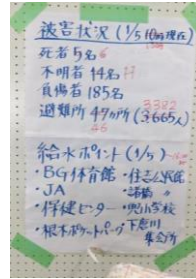 被害状況 (1/5 10時現在)
死者5名 6
不明者14名
負傷者185名
3382
避難所 47ヶ所 (3,665人)
45
給水ポイント (1/5)
・BG体育館 ・住吉公民館
・JA ・諸橋 〃
・保健センター ・兜小学校
・根木ポケットパーク 下唐川
集会所